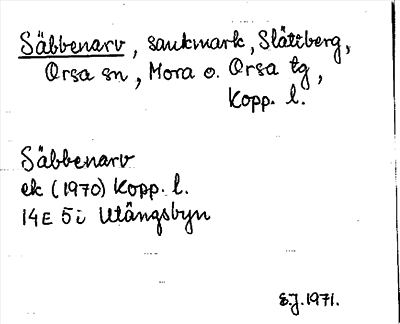 Säbbenarv, sankmark, Slättberg,
Orsa sn, Mora o. Orsa tg,
Kopp. l.
Säbbenarv
ek (1970) Kopp. l.
14E 5i Utängsbyn
S.J. 1971.